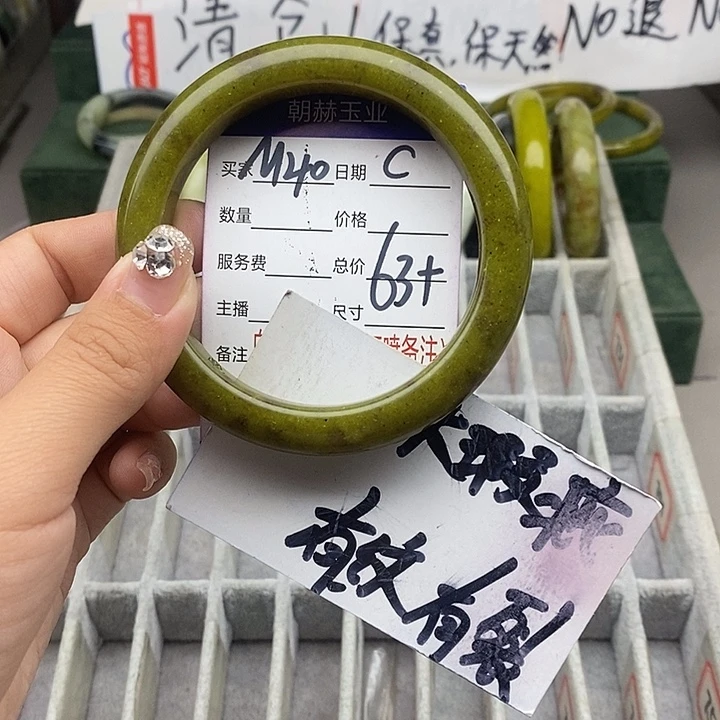 清仓 保真.保天然 No退 N
朝赫玉业
买家 M40 日期 C
数量 价格
服务费 总价 63+
主播 尺寸
备注 喷备注)
大瑕疵
有纹有裂